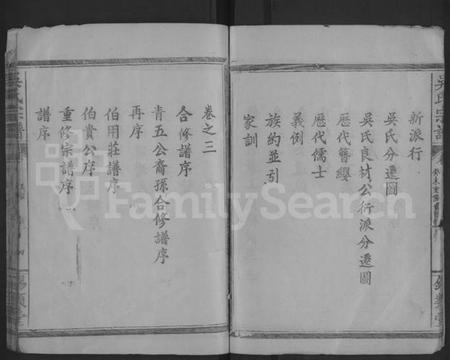 新派行
吳氏分遷圖
吳氏良材公行派分遷圖
歷代簪纓
歷代儒士
義例
族約並引
家訓
卷之三
合修譜序
青五公裔孫合修譜序
再序
伯用莊譜序
伯貴公序
重修宗譜序
譜序
吳氏宗譜
FamilySearch